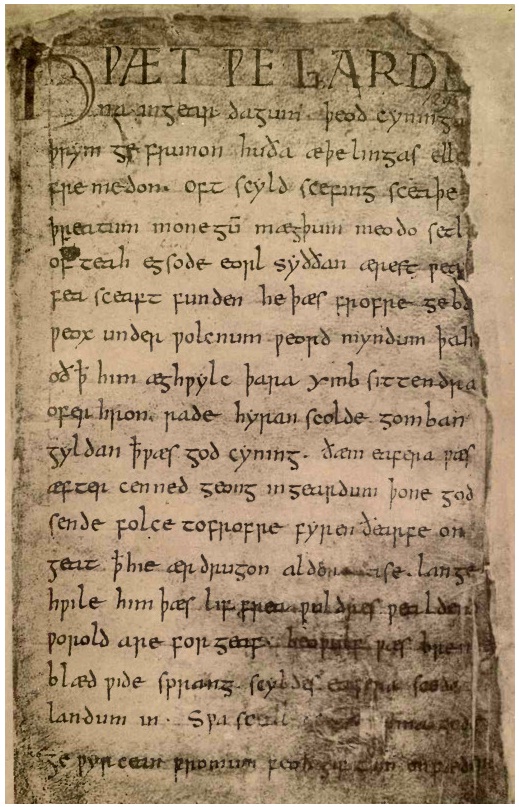 HǷÆT ǷE GARDE
na ingear dagum. þeod cyninga
þrym ge frunon huða æþelingas elle
fremedon. oft scyld scefing sceaþe
þreatum monegū mægþum meodo setl
of teah egsode eorl syððan ærest ƿea
fea sceaft funden he þæs frofre geba
ƿeox under ƿolcnum ƿeorð myndum þah
oð ꝥ him æghƿylc þara ymb sittendra
ofer hron rade hyran scolde gomban
gyldan ꝥ ƿæs god cyning. ðæm eafera ƿæs
æfter cenned geong in geardum þone god
sende folce tofrofre fyren ðearfe on
geat ꝥ hie ær drugon aldor ase. lange
hƿile him þæs lif frea ƿuldres ƿealden
ƿorold are for geaf. beoƿulf ƿæs breme
blæd ƿide sprang scyldes eafera scede
landum in. Sƿa sceal guma gode
ge ƿyrcean fromum feoh giftum on fæder